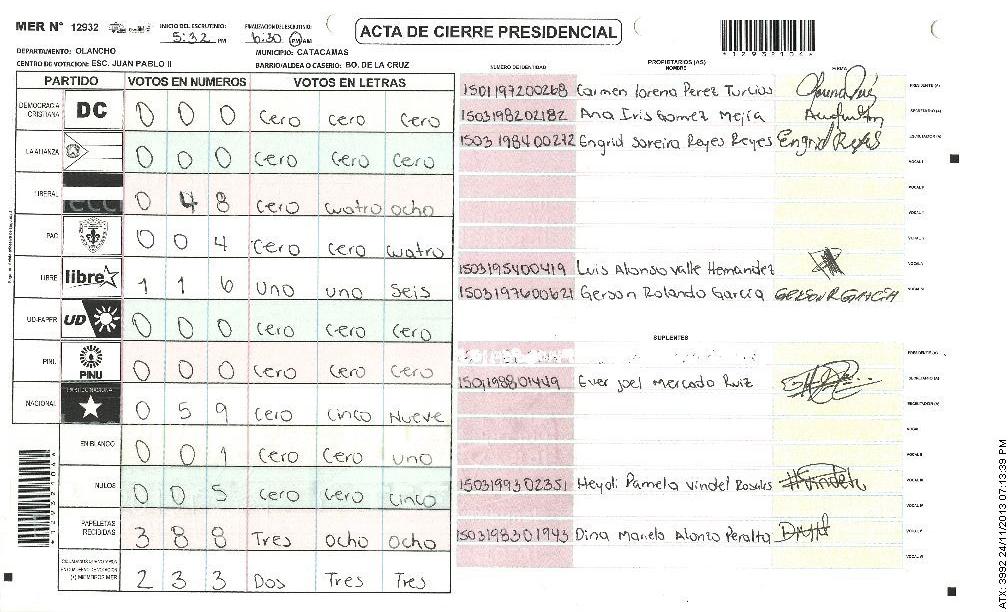 MER N° 12932 INICIO DEL ESCRUTINIO: 5:32 PM FINALIZACION DEL ESCRUTINIO: 6:30 PM AM
ACTA DE CIERRE PRESIDENCIAL
DEPARTAMENTO: OLANCHO MUNICIPIO: CATACAMAS
CENTRO DE VOTACION: ESC. JUAN PABLO II BARRIO/ALDEA O CASERIO: BO. DE LA CRUZ
PARTIDO VOTOS EN NUMEROS VOTOS EN LETRAS
DEMOCRACIA CRISTIANA DC 0 0 0 cero cero cero
LA ALIANZA 0 0 0 cero cero cero
LIBERAL 0 4 8 cero cuatro ocho
PAC 0 0 4 cero cero cuatro
LIBRE libre 1 1 6 uno uno seis
UD-FAPER UD 0 0 0 cero cero cero
PINU PINU 0 0 0 cero cero cero
NACIONAL 0 5 9 cero cinco Nueve
EN BLANCO 0 0 1 cero cero uno
NULOS 0 0 5 cero cero cinco
PAPELETAS RECIBIDAS 3 8 8 Tres ocho ocho
(+) MIEMBROS MER 2 3 3 Dos Tres Tres
NUMERO DE IDENTIDAD PROPIETARIOS (AS) NOMBRE FIRMA
1501197200268 Carmen Lorena Perez Turcios PRESIDENTE (A)
1503198202182 Ana Iris Gomez Mejía SECRETARIO (A)
1503198400272 Engrid Soreira Reyes Reyes Engrid Reyes ESCRUTADOR (A)
VOCAL I
VOCAL II
1503195400419 Luis Alonso Valle Hernandez
1503197600621 Gerson Rolando García GERSON R GARCIA
SUPLENTES
PRESIDENTE (A)
1501198801449 Ever Joel Mercado Ruiz SECRETARIO (A)
ESCRUTADOR (A)
VOCAL I
VOCAL II
1503199302351 Heydi Pamela Vindel Rosales HVindel
1503198301943 Dina Mariela Alonzo Peralta
ATX: 3992 24/11/2013 07:13:39 PM